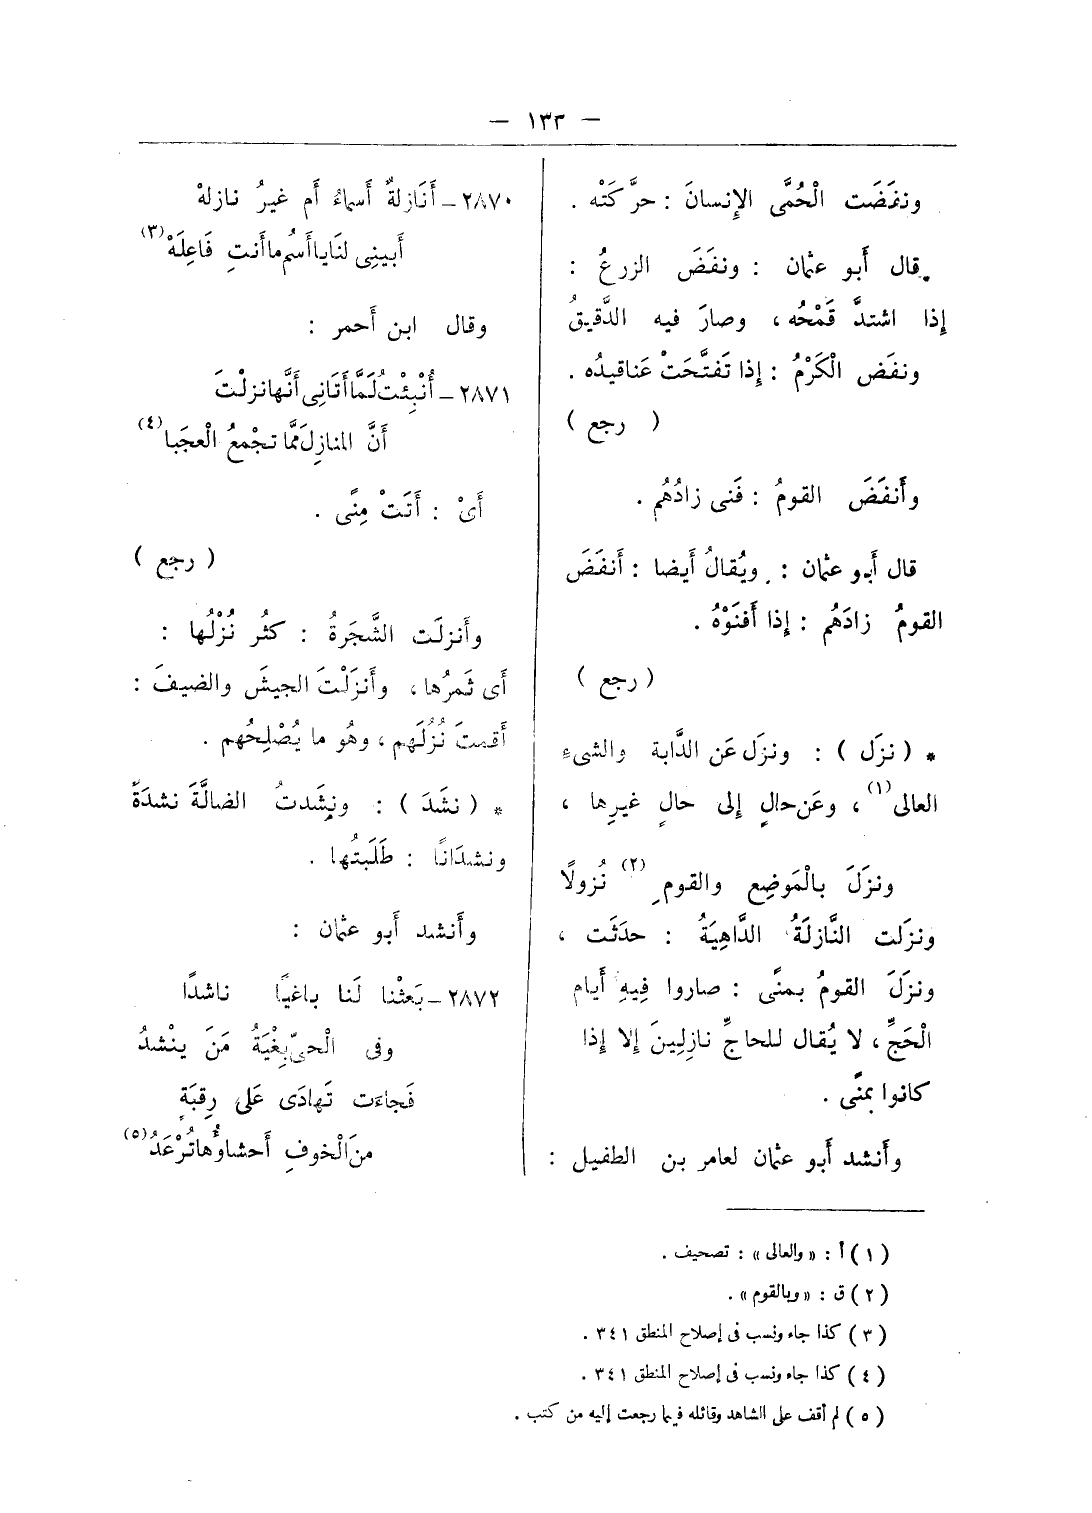 — ١٣٣ —
ونفَضَت الْحُمَّى الإنسانَ : حرَّكَتْه .
قال أَبو عثمان : ونفَضَ الزرعُ :
إذا اشتدَّ قَمْحُه، وصارَ فيه الدَّقيقُ
ونفَض الْكَرْمُ : إذا تَفتَّحَتْ عَناقيدُه .
( رجع )
وأَنفَضَ القومُ : فَنى زادُهُم .
قال أَبو عثمان : ويُقالُ أَيضا : أَنفَضَ
القومُ زادَهُم : إذا أَفنَوْهُ .
( رجع )
* ( نزَل ) : ونزَل عَن الدَّابة والشىءِ
العالى (١) ، وعَن حالٍ إلى حالٍ غيرِها ،
ونزَلَ بالْمَوضِع والقومِ (٢) نُزولًا
ونزَلت النَّازلَةُ الدَّاهِيَةُ : حدَثَت ،
ونزَلَ القومُ بمنًى : صاروا فِيهِ أَيام
الْحَجِّ ، لا يُقال للحاجِّ نازِلِينَ إلا إذا
كانوا بمنًى .
وأَنشد أَبو عثمان لعامر بن الطفيل :
٢٨٧٠ – أَنَازلةٌ أَسماءُ أَم غيرُ نازلهْ
أَبينِى لنَا يا أَسْمُ ما أَنتِ فَاعِلَهْ (٣)
وقال ابن أَحمر :
٢٨٧١ – أُنْبِئْتُ لَمَّا أَتَانِى أَنَّها نزلْتَ
أَنَّ المنازِلَ ممَّا تجْمعُ الْعجَبا (٤)
أَىْ : أَتَتْ مِنًى .
( رجع )
وأَنزلَت الشَّجَرةُ : كثُر نُزْلُها :
أَى ثَمرُها، وأَنزَلْتَ الجيشَ والضيفَ :
أَقمتَ نُزُلَهم ، وهُو ما يُصْلِحُهم .
* ( نشَدَ ) : ونِشَدتُ الضالَّةَ نشدَةً
ونشدَانًا : طَلَبتُها .
وأَنشد أَبو عثمان :
٢٨٧٢ – بَعثْنا لَنا باغيًا ناشدًا
وفى الْحىِّ بِغْيَةُ مَنَ ينْشدُ
فَجاءَت تَهادَى عَلى رِقبَةٍ
منَ الْخوفِ أَحشاوُها تُرْعَدُ (٥)
( ١ ) أ : « والعالى » : تصحيف .
( ٢ ) ق : « وبالقوم » .
( ٣ ) كذا جاء ونسب فى إصلاح المنطق ٣٤١ .
( ٤ ) كذا جاء ونسب فى إصلاح المنطق ٣٤١ .
( ٥ ) لم أقف على الشاهد وقائله فيما رجعت إليه من كتب .